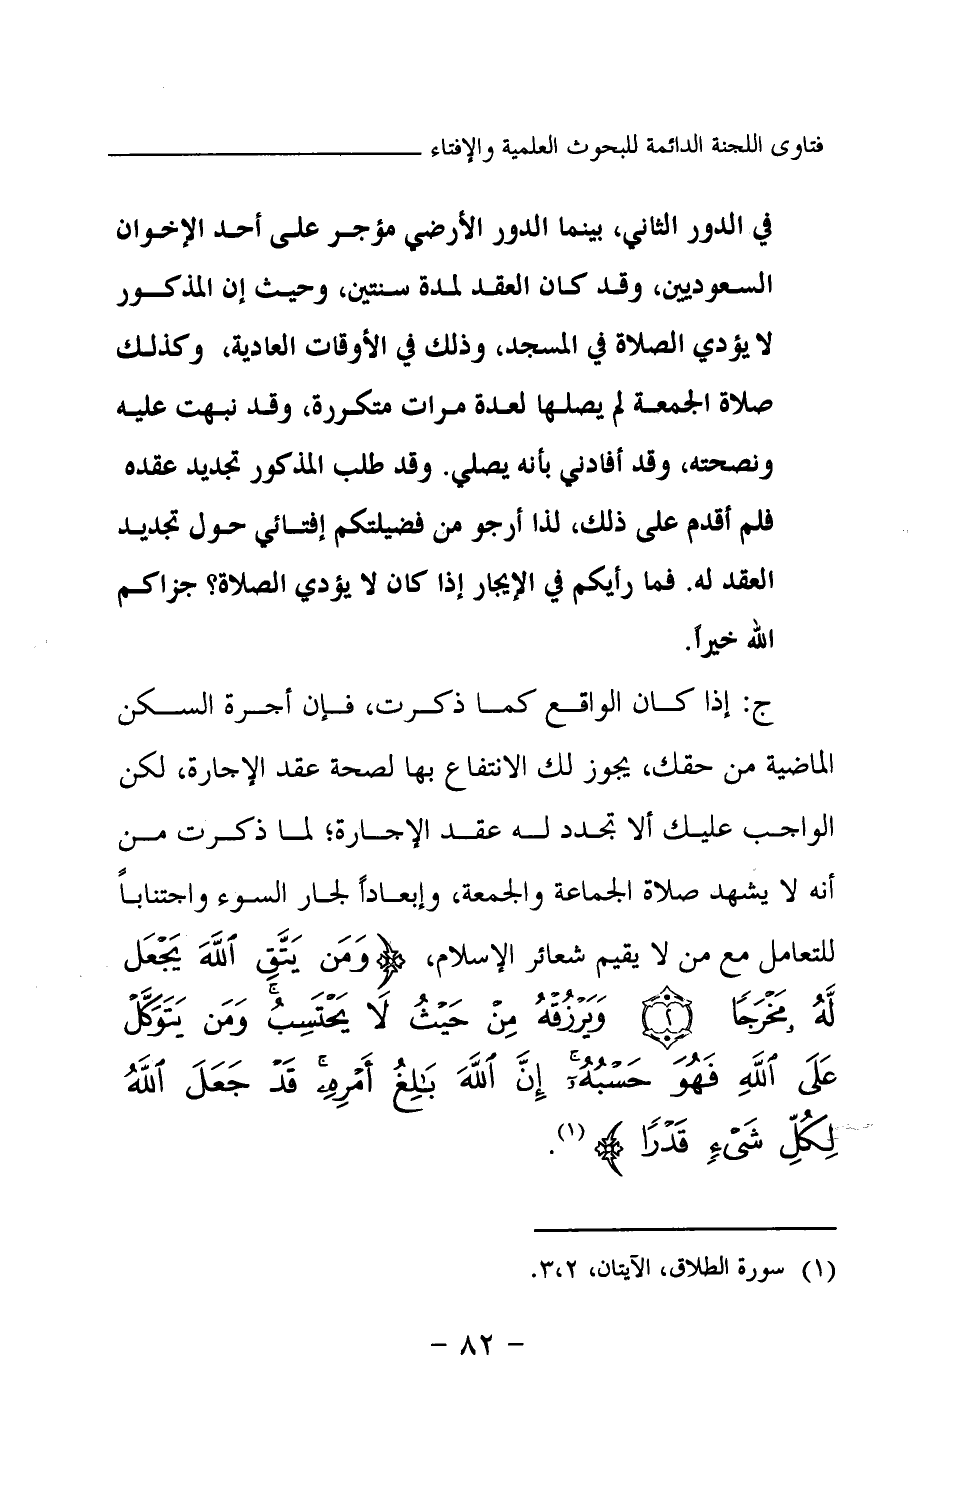 فتاوى اللجنة الدائمة للبحوث العلمية والإفتاء
في الدور الثاني، بينما الدور الأرضي مؤجر على أحد الإخوان
السعوديين، وقد كان العقد لمدة سنتين، وحيث إن المذكور
لا يؤدي الصلاة في المسجد، وذلك في الأوقات العادية، وكذلك
صلاة الجمعة لم يصلها لعدة مرات متكررة، وقد نبهت عليه
ونصحته، وقد أفادني بأنه يصلي. وقد طلب المذكور تجديد عقده
فلم أقدم على ذلك، لذا أرجو من فضيلتكم إفتائي حول تجديد
العقد له. فما رأيكم في الإيجار إذا كان لا يؤدي الصلاة؟ جزاكم
الله خيراً.
ج: إذا كان الواقع كما ذكرت، فإن أجرة السكن
الماضية من حقك، يجوز لك الانتفاع بها لصحة عقد الإجارة، لكن
الواجب عليك ألا تجدد له عقد الإجارة؛ لما ذكرت من
أنه لا يشهد صلاة الجماعة والجمعة، وإبعاداً لجار السوء واجتناباً
للتعامل مع من لا يقيم شعائر الإسلام، ﴿وَمَن يَتَّقِ ٱللَّهَ يَجْعَل
لَّهُۥ مَخْرَجًا ۝٢ وَيَرْزُقْهُ مِنْ حَيْثُ لَا يَحْتَسِبُ ۚ وَمَن يَتَوَكَّلْ
عَلَى ٱللَّهِ فَهُوَ حَسْبُهُۥٓ ۚ إِنَّ ٱللَّهَ بَٰلِغُ أَمْرِهِۦ ۚ قَدْ جَعَلَ ٱللَّهُ
لِكُلِّ شَىْءٍ قَدْرًا﴾(١).
(١) سورة الطلاق، الآيتان، ٣،٢.
- ٨٢ -